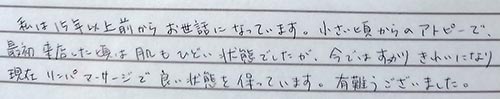 私は15年以上前からお世話になっています。小さい頃からのアトピーで、
最初来店した頃は肌もひどい状態でしたが、今ではすっかりきれいになり
現在リンパマッサージで良い状態を保っています。有難うございました。